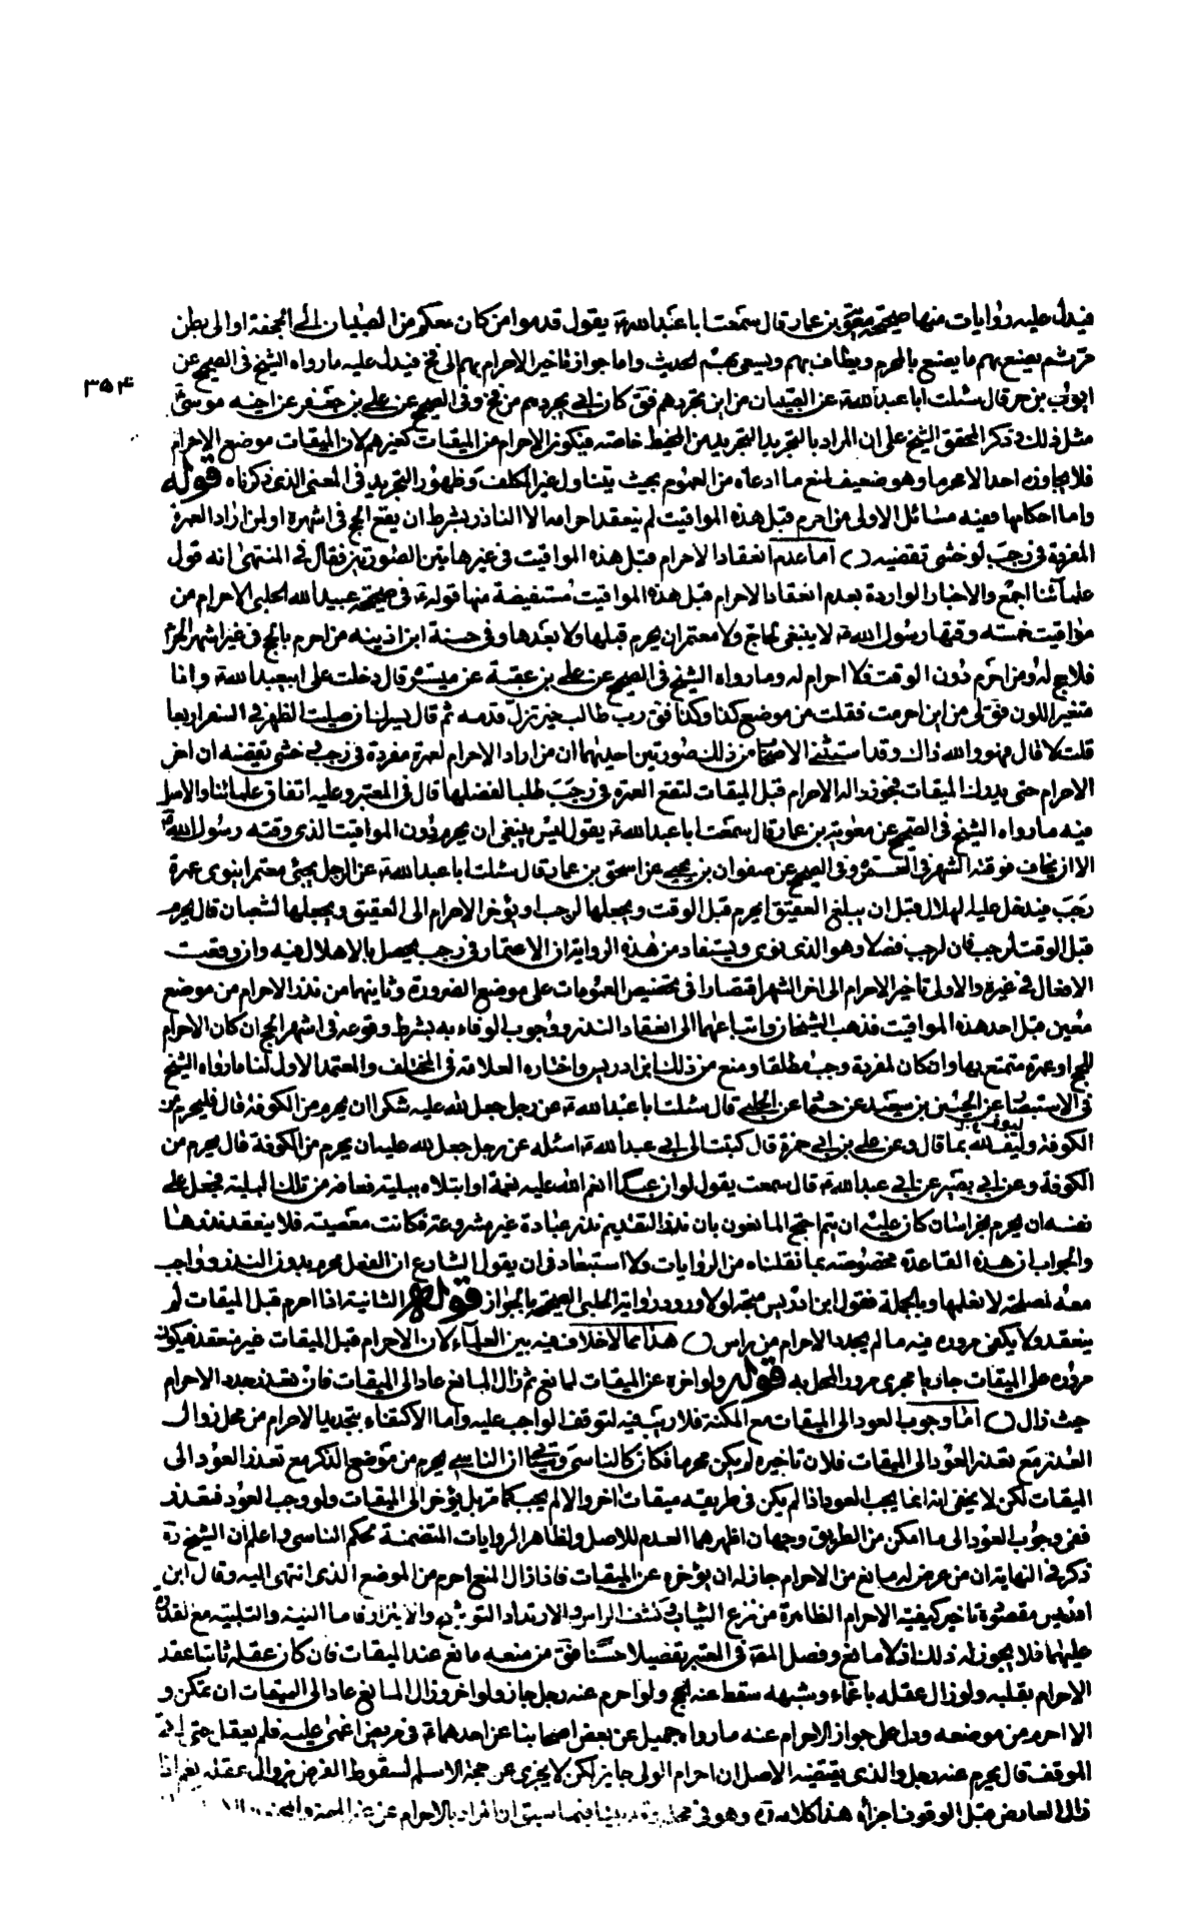 فيدل عليه روايات منها صحيحة معوية بن عمار قال سمعت ابا عبد الله ع يقول قدموا من كان معكم من الصبيان الى الجحفة او الى بطن
مر ثم يصنع بهم ما يصنع بالمحرم ويطاف بهم ويسعى بهم الحديث واما جواز تاخير الاحرام بهم الى فخ فيدل عليه ما رواه الشيخ في الصحيح عن
۳۵۴
ايوب بن حر قال سئلت ابا عبد الله ع عن الصبيان من اين نجردهم فق كان ابي يجردهم من فخ وفي الصحيح عن علي بن جعفر عن اخيه موسى ع
مثل ذلك وذكر المحقق الشيخ علي ان المراد بالتجريد التجريد من المخيط خاصه فيكون الاحرام من الميقات كغيرهم لان الميقات موضع الاحرام
فلا يجاوزه احد الا محرما وهو ضعيف لمنع ما ادعاه من العموم بحيث يتناول غير المكلف وظهور التجريد في المعنى الذي ذكرناه قوله
واما احكامها ففيه مسائل الاولى من احرم قبل هذه المواقيت لم ينعقد احرامه الا الناذر بشرط ان يقع الحج في اشهره او لمن اراد العمرة
المفردة في رجب لو خشى تقضيه اما عدم انعقاد الاحرام قبل هذه المواقيت في غير هاتين الصورتين فقال في المنتهى انه قول
علمائنا اجمع والاخبار الواردة بعدم انعقاد الاحرام قبل هذه المواقيت مستفيضة منها قوله ع في صحيحة عبيد الله الحلبي الاحرام من
مواقيت خمسه وقتها رسول الله ص لا ينبغي لحاج ولا معتمر ان يحرم قبلها ولا بعدها وفي حسنة ابن اذينه من احرم بالحج في غير اشهر الحج
فلا حج له ومن احرم دون الوقت فلا احرام له وما رواه الشيخ في الصحيح عن علي بن عقبة عن ميسر قال دخلت على ابيعبد الله ع وانا
متغير اللون فق لي من اين احرمت فقلت من موضع كذا وكذا فق رب طالب خير تزل قدمه ثم قال يسرك ان صليت الظهر في السفر اربعا
قلت لا قال فهو والله ذاك وقد استثنى الاصحاب من ذلك صورتين احديهما ان من اراد الاحرام لعمرة مفردة في رجب خشى تقضيه ان اخر
الاحرام حتى يدرك الميقات فيجوز له الاحرام قبل الميقات لتقع العمرة في رجب طلبا لفضلها قال في المعتبر وعليه اتفاق علمائنا والاصل
فيه ما رواه الشيخ في الصحيح عن معوية بن عمار قال سمعت ابا عبد الله ع يقول ليس ينبغي ان يحرم دون المواقيت الذي وقته رسول الله ص
الا ان يخاف فوت الشهر في العمرة وفي الصحيح عن صفوان بن يحيى عن اسحق بن عمار قال سئلت ابا عبد الله ع عن الرجل يجئ معتمرا ينوى عمرة
رجب فيدخل عليه الهلال قبل ان يبلغ العقيق ايحرم قبل الوقت ويجعلها لرجب او يؤخر الاحرام الى العقيق ويجعلها لشعبان قال يحرم
قبل الوقت لرجب فان لرجب فضلا وهو الذي نوى ويستفاد من هذه الرواية ان الاعتمار في رجب يحصل بالاهلال فيه وان وقعت
الافعال في غيره والاولى تاخير الاحرام الى اخر الشهر اقتصارا في تخصيص العمومات على موضع الضرورة وثانيهما من نذر الاحرام من موضع
معين قبل احد هذه المواقيت فذهب الشيخان واتباعهما الى انعقاد النذر ووجوب الوفاء به بشرط وقوعه في اشهر الحج ان كان الاحرام
للحج او عمرة متمتع بها وان كان لمفردة وجب مطلقا ومنع من ذلك ابن ادريس واختاره العلامة في المختلف والمعتمد الاول لنا ما رواه الشيخ
في الاستبصار عن الحسين بن سعيد عن حماد عن الحلبي قال سئلت ابا عبد الله ع عن رجل جعل لله عليه شكرا ان يحرم من الكوفة قال فليحرم من
الكوفة وليف لله بما قال وعن علي بن ابي حمزة قال كتبت الى ابي عبد الله ع اسئله عن رجل جعل لله عليه ان يحرم من الكوفة قال يحرم من
الكوفة وعن ابي بصير عن ابي عبد الله ع قال سمعت يقول لو ان عبدا انعم الله عليه نعمة او ابتلاه ببلية فعافاه من تلك البلية فجعل على
نفسه ان يحرم بخراسان كان عليه ان يتم احتج المانعون بان نذر التقديم نذر عبادة غير مشروعة فكانت معصية فلا ينعقد نذرها
والجواب ان هذه القاعدة مخصوصة بما نقلناه من الروايات ولا استبعاد في ان يقول الشارع ان الفعل محرم بدون النذر وواجب
معه لمصلحة لا نعلمها وبالجملة فقول ابن ادريس متجه لولا ورود رواية الحلبي الصحيحة بالجواز قوله الثانية اذا احرم قبل الميقات لم
ينعقد ولا يكفى مروره فيه ما لم يجدد الاحرام من راس هذا مما لا خلاف فيه بين العلماء لان الاحرام قبل الميقات غير منعقد فيكون
مروره على الميقات جاريا مجرى مرور المحل به قوله ولو اخره عن الميقات لمانع ثم زال المانع عاد الى الميقات فان تعذر جدد الاحرام
حيث زال اما وجوب العود الى الميقات مع المكنة فلا ريب فيه لتوقف الواجب عليه واما الاكتفاء بتجديد الاحرام من محل زوال
العذر مع تعذر العود الى الميقات فلان تاخيره لم يكن محرما فكان كالناسى وسيجئ ان الناسى يحرم من موضع الذكر مع تعذر العود الى
الميقات لكن لا يخفى انه انما يجب العود اذا لم يكن في طريقه ميقات اخر والا لم يجب كما مر بل يؤخر الى الميقات ولو وجب العود فتعذر
ففى وجوب العود الى ما امكن من الطريق وجهان اظهرهما العدم للاصل ولظاهر الروايات المتضمنة لحكم الناسى واعلم ان الشيخ ره
ذكر في النهاية ان من عرض له مانع من الاحرام جاز له ان يؤخره عن الميقات فاذا زال المنع احرم من الموضع الذي انتهى اليه وقال ابن
ادريس مقصوده تاخير كيفية الاحرام الظاهرة من نزع الثياب وكشف الراس والارتداء والتوشح والاتزار فاما النية والتلبية مع القدرة
عليهما فلا يجوز له ذلك اذ لا مانع وفصل المص في المعتبر تفصيلا حسنا فق من منعه مانع عند الميقات فان كان عقله ثابتا عقد
الاحرام بقلبه ولو زال عقله باغماء وشبهه سقط عنه الحج ولو احرم عنه رجل جاز ولو اخر وزال المانع عاد الى الميقات ان تمكن و
الا احرم من موضعه ودل على جواز الاحرام عنه ما رواه جميل عن بعض اصحابنا عن احدهما ع في مريض اغمى عليه فلم يعقل حتى اتى
الموقف قال يحرم عنه رجل والذي يقتضيه الاصل ان احرام الولى جايز لكن لا يجزى عن حجة الاسلام لسقوط الفرض بزوال عقله نعم اذا
زال العارض قبل الوقوف اجزأه هذا كلامه ره وهو في محله وقد بينا فيما سبق ان المراد بالاحرام عن غير المميز